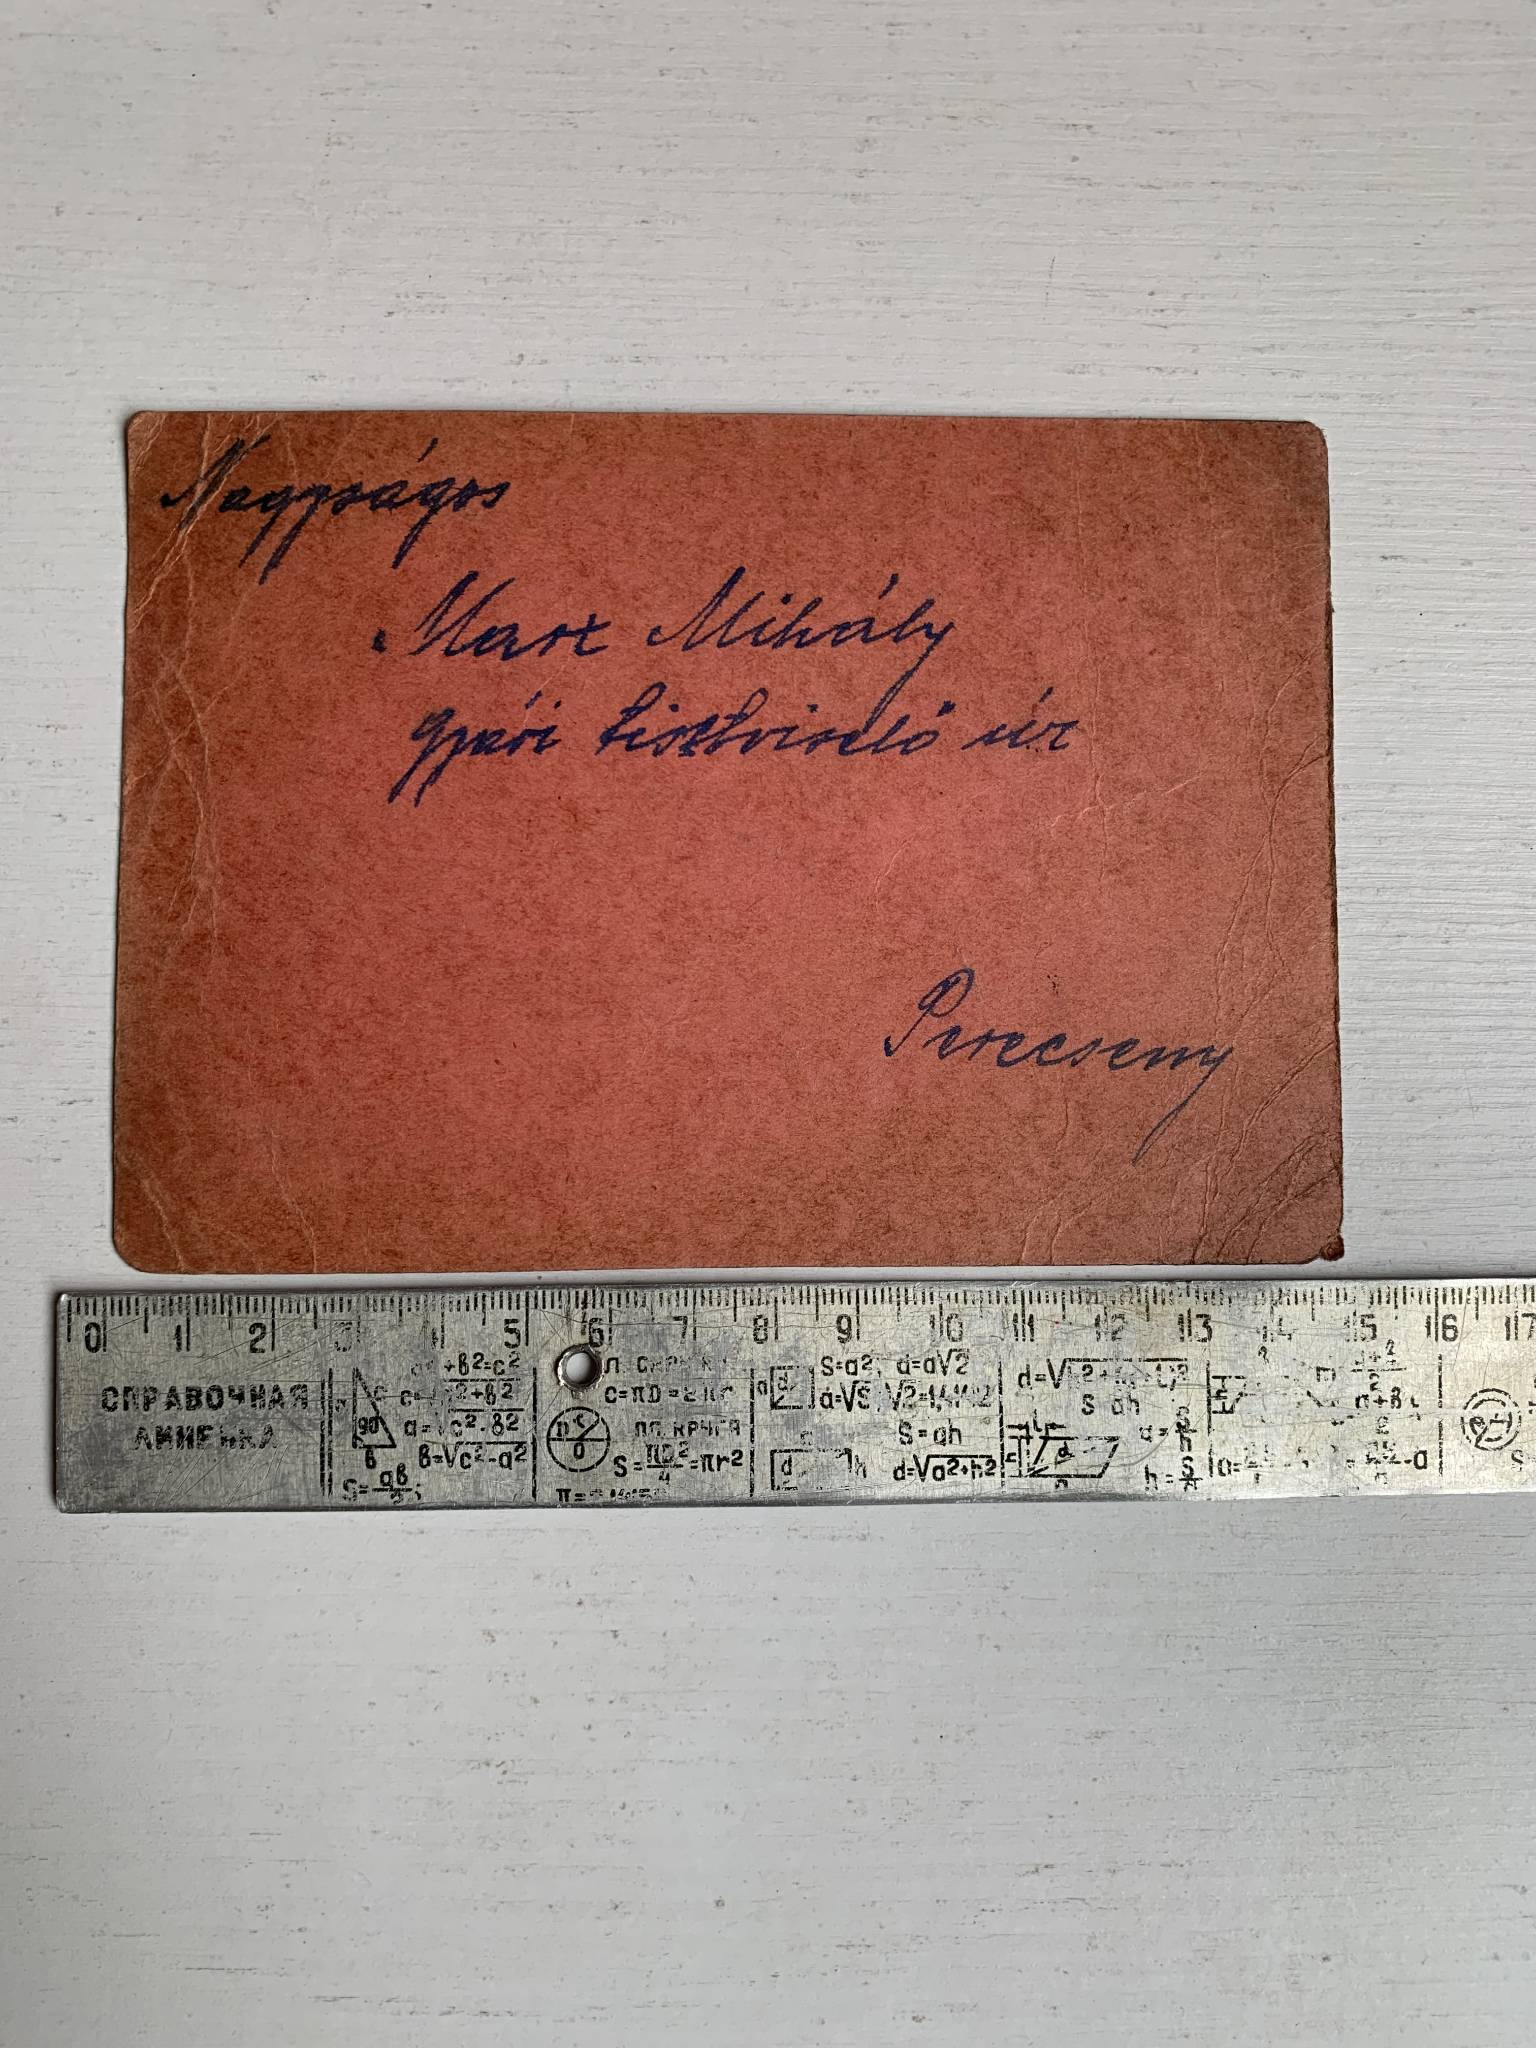 Nagyságos
Marx Mihály
gyári tisztviselő úr
Perecseny
0 1 2 3 4 5 6 7 8 9 10 11 12 13 14 15 16 17
СПРАВОЧНАЯ
ЛИНЕЙКА
c=πD=2πr
a=√c²-в²
в=√c²-a²
S=aв/2
ПЛ. КРУГА
S=πD²/4=πr²
S=a² d=a√2
a=√S √2=1,4142
S=ah
d=√a²+h²
S=ah
a=S/h
h=S/a